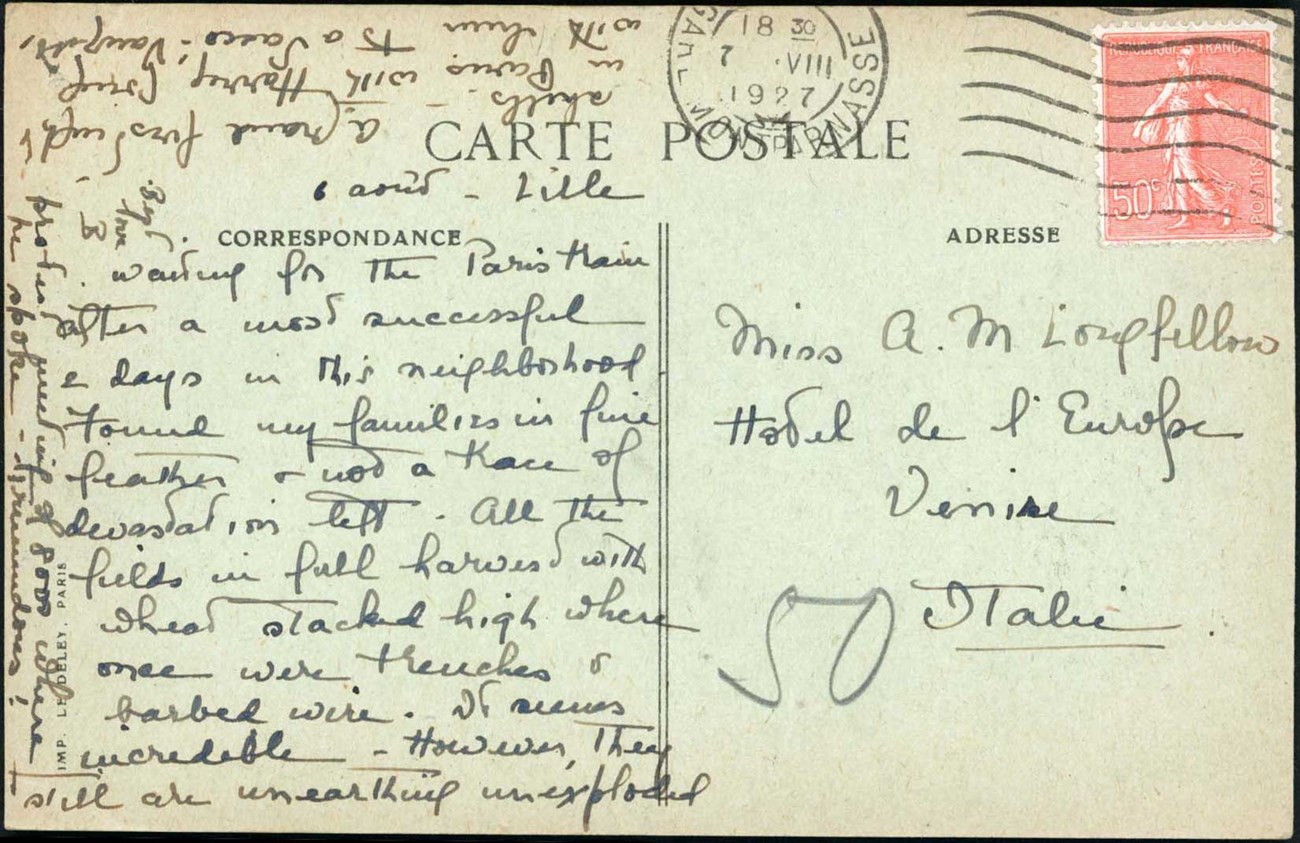 CARTE POSTALE
6 août - Lille
CORRESPONDANCE
waiting for the Paris train
after a most successful
2 days in this neighborhood
Found my families in fine
feather & not a trace of
devastation left. All the
fields in full harvest with
wheat stacked high where
once were trenches &
barbed wire. It seems
incredible - However, they
still are unearthing unexploded
shells. - A grand first night
in Paris with Harry
with him to a Sacco-Vanzetti
protest meeting of 8000 where
he spoke - Tremendous!
Best
love
B
IMP. LE DELEY, PARIS
18 30
7 VIII
1927
GARE MONTPARNASSE
REPUBLIQUE FRANÇAISE
50c
POSTES
ADRESSE
Miss A. M Longfellow
Hotel de l'Europe
Venise
Italie
50